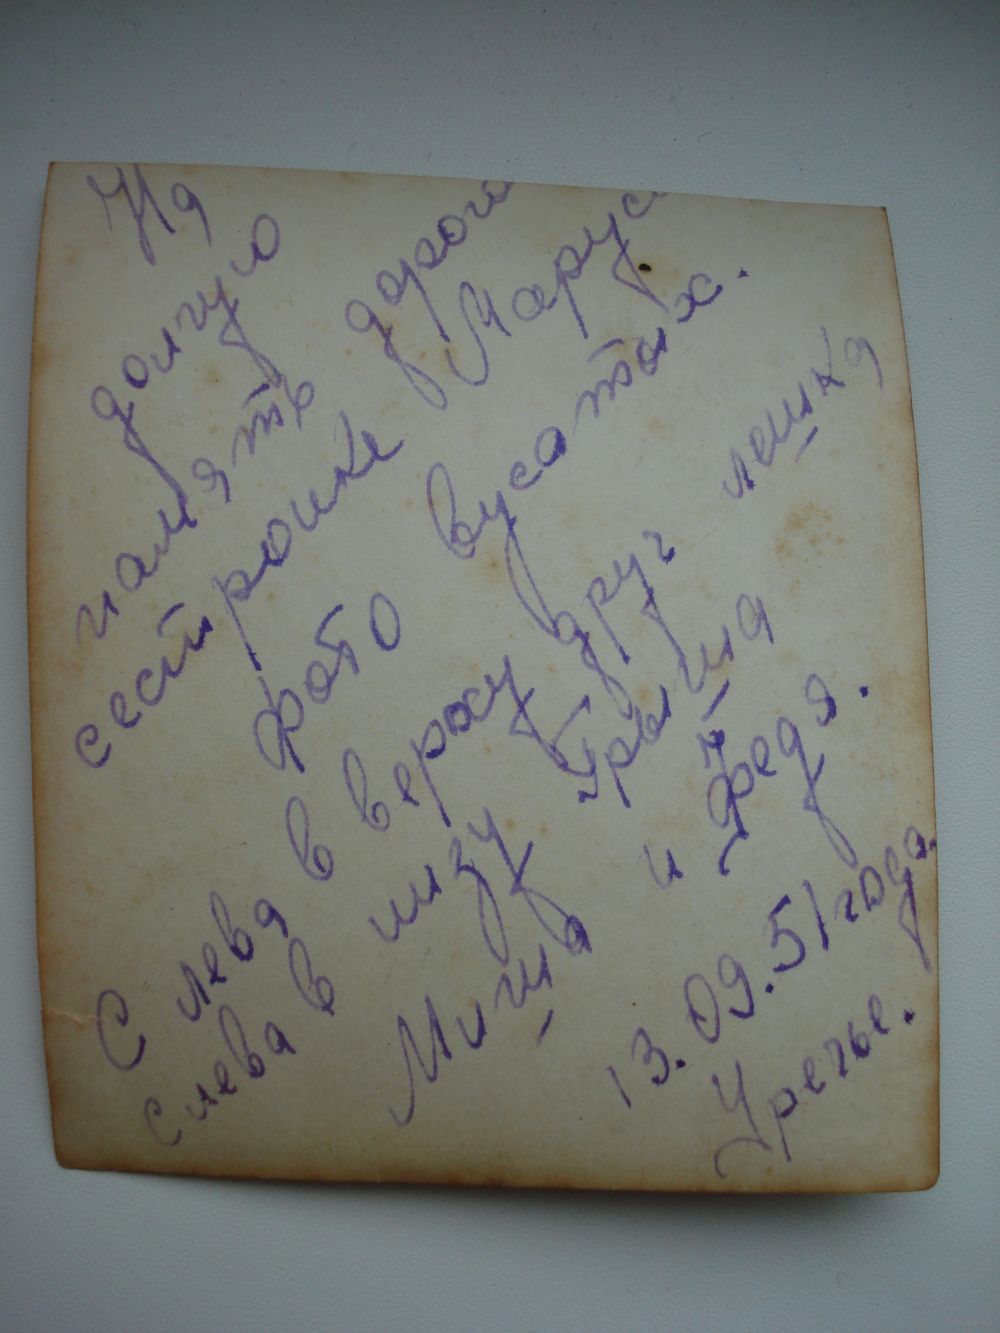 На
долгую
память дороги
сестроике Маруси
фото вусатых.
С лева в верху друг лешка
слева в низу Грыша
Миша и Федя.
13.09.51 года.
Уречье.